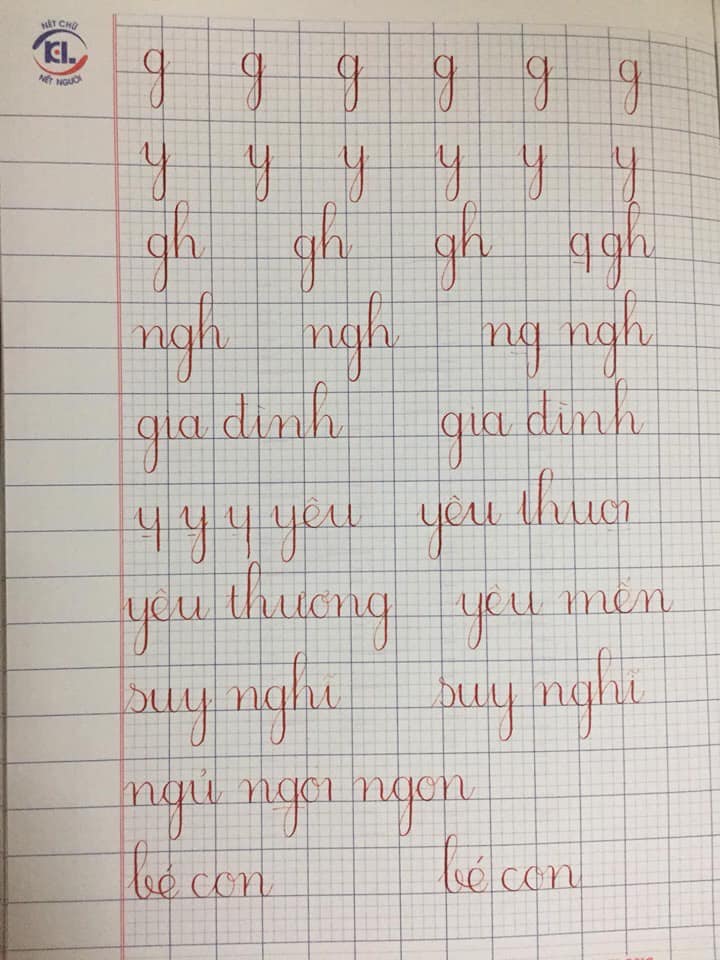 NÉT CHỮ
KL
NẾT NGƯỜI
g g g g g g
y y y y y y
gh gh gh q gh
ngh ngh ng ngh
gia đình gia đình
y y y yêu yêu thươ
yêu thương yêu mến
suy nghĩ suy nghĩ
ngủ ngơi ngon
bé con bé con